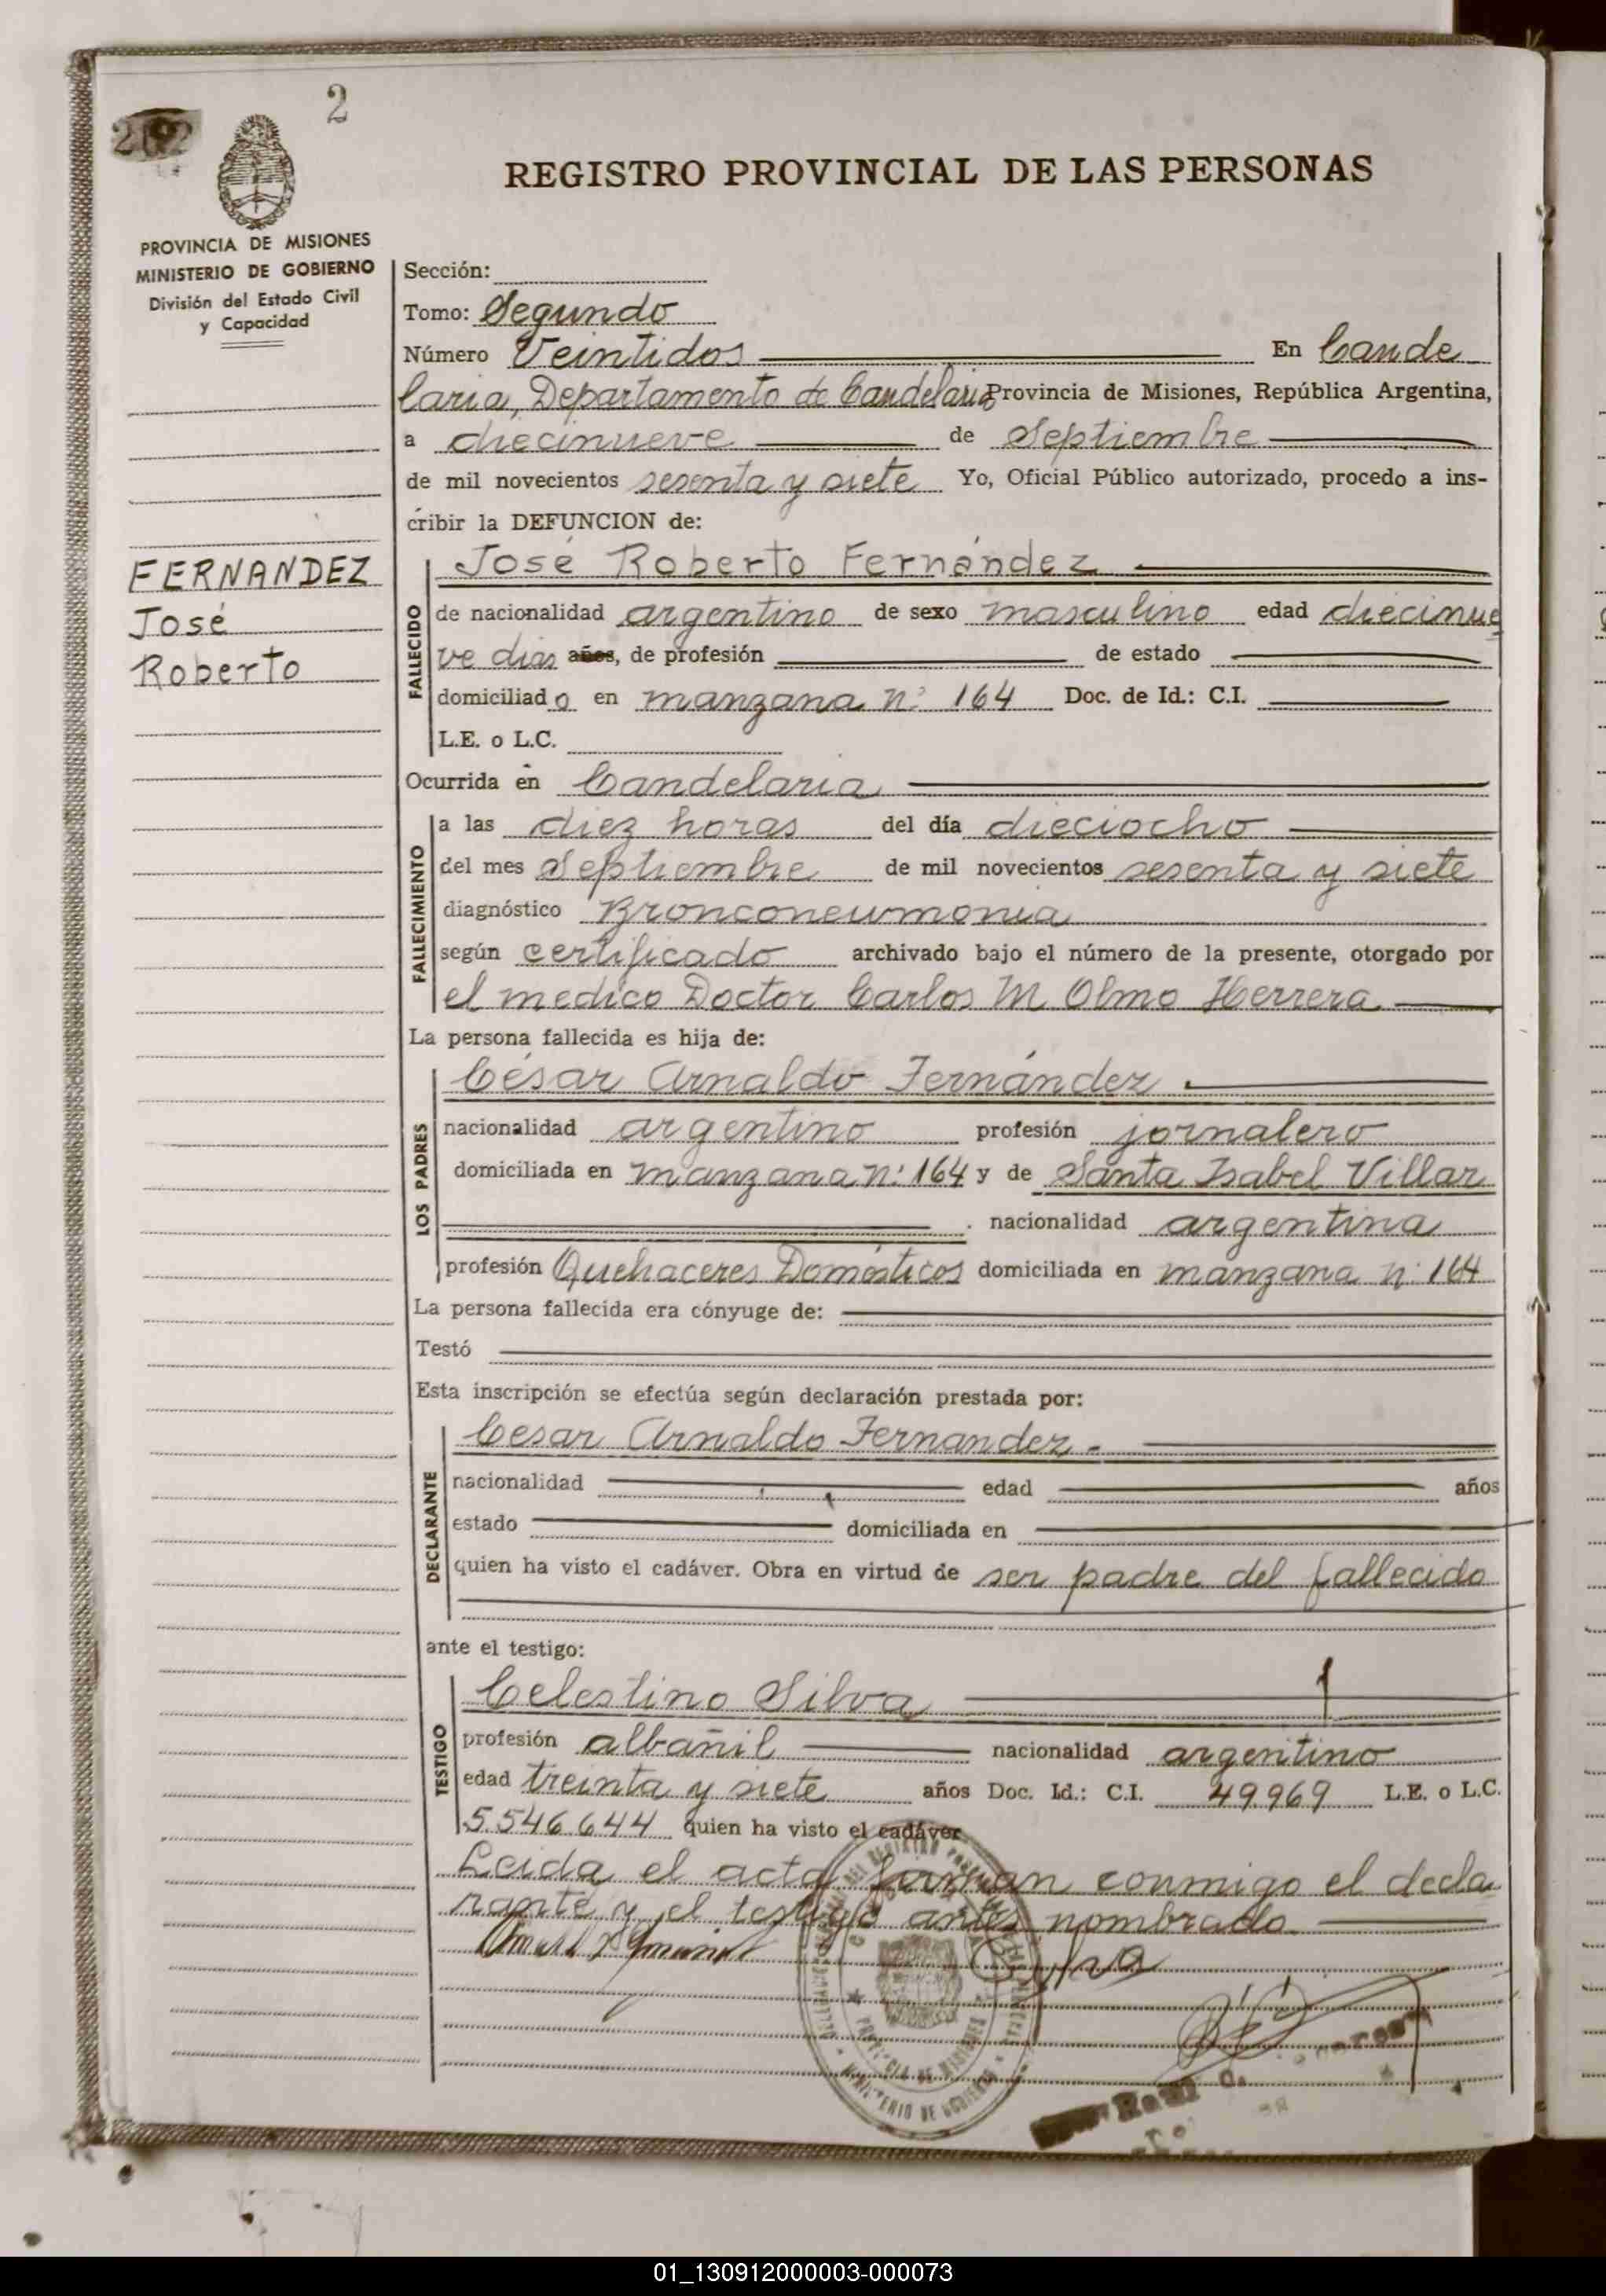 2
REGISTRO PROVINCIAL DE LAS PERSONAS
PROVINCIA DE MISIONES
MINISTERIO DE GOBIERNO
División del Estado Civil
y Capacidad
FERNANDEZ
José
Roberto
Sección:
Tomo: Segundo
Número Veintidos En Cande
laria, Departamento de Candelaria Provincia de Misiones, República Argentina,
a diecinueve de Septiembre
de mil novecientos sesenta y siete Yo, Oficial Público autorizado, procedo a ins-
cribir la DEFUNCION de:
FALLECIDO
José Roberto Fernández
de nacionalidad argentino de sexo masculino edad diecinue
ve dias años, de profesión de estado
domiciliado en manzana nº 164 Doc. de Id.: C.I.
L.E. o L.C.
Ocurrida en Candelaria
FALLECIMIENTO
a las diez horas del día dieciocho
del mes Septiembre de mil novecientos sesenta y siete
diagnóstico Bronconeumonia
según certificado archivado bajo el número de la presente, otorgado por
el medico Doctor Carlos M. Olmo Herrera
La persona fallecida es hija de:
LOS PADRES
César Arnaldo Fernández
nacionalidad argentino profesión jornalero
domiciliada en manzana nº 164 y de Santa Isabel Villar
nacionalidad argentina
profesión Quehaceres Domésticos domiciliada en manzana nº 164
La persona fallecida era cónyuge de:
Testó
Esta inscripción se efectúa según declaración prestada por:
DECLARANTE
Cesar Arnaldo Fernandez.
nacionalidad edad años
estado domiciliada en
quien ha visto el cadáver. Obra en virtud de ser padre del fallecido
ante el testigo:
TESTIGO
Celestino Silva
profesión albañil nacionalidad argentino
edad treinta y siete años Doc. Id.: C.I. 49.969 L.E. o L.C.
5.546.644 quien ha visto el cadáver.
Leida el acta firman conmigo el decla
rante y el testigo antes nombrado
PROVINCIA DE MISIONES
MINISTERIO DE GOBIERNO
01_130912000003-000073